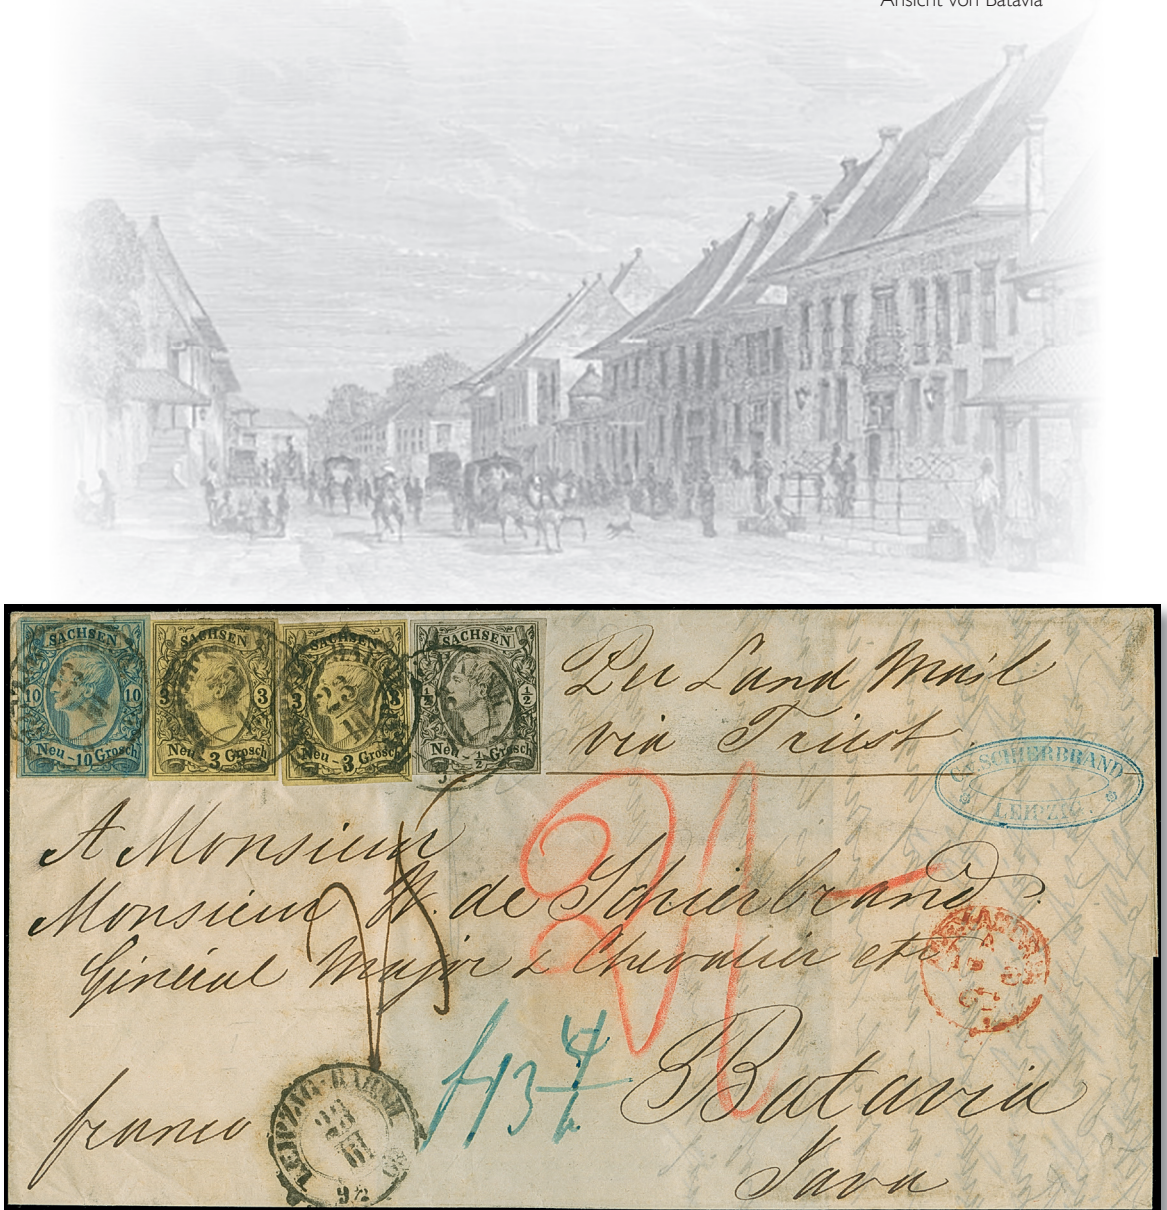 Ansicht von Batavia
SACHSEN
10 10
Neu - 10 Grosch
SACHSEN
3 3
Neu - 3 Grosch
SACHSEN
3 3
Neu - 3 Grosch
SACHSEN
½ ½
Neu - ½ Grosch
23
III
Per Land Mail
via Triest.
C. SCHIERBRAND
LEIPZIG
A Monsieur
Monsieur W. de Schierbrand
Général Major & Chevalier etc
Batavia
Java
franco
LEIPZIG-BAHNH.
23
III
9½